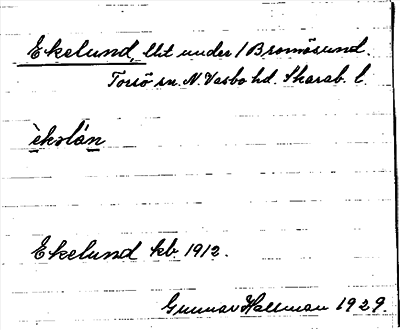 Ekelund, lht under 1 Bromösund.
Torsö sn. N. Vadsbo hd. Skarab. l.
èkɘlán
Ekelund kb 1912.
Gunnar Hallman 1929.